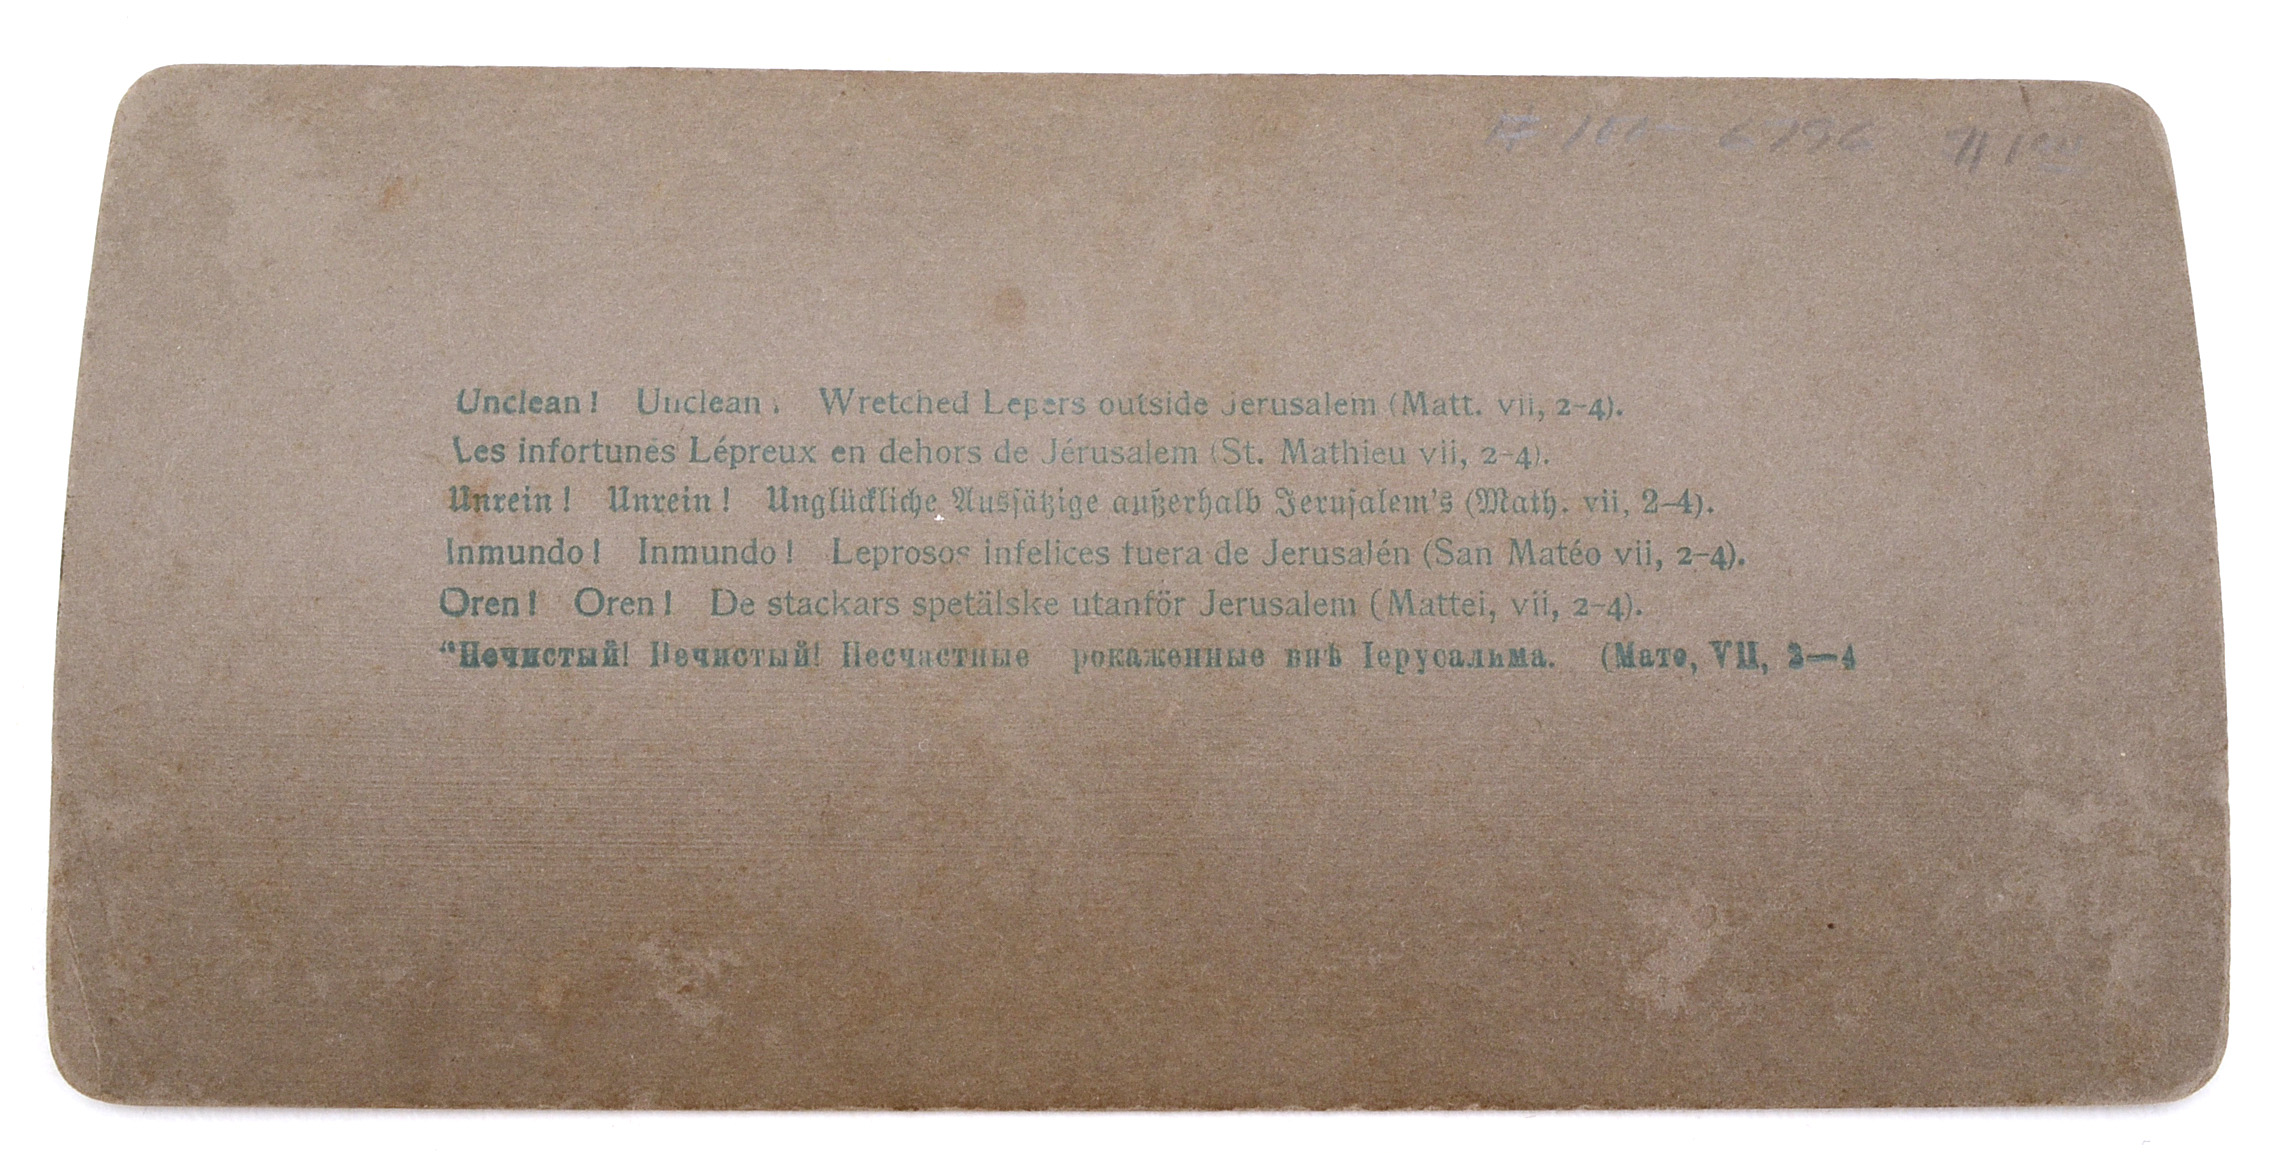 Unclean! Unclean! Wretched Lepers outside Jerusalem (Matt. vii, 2-4).
Les infortunés Lépreux en dehors de Jérusalem (St. Mathieu vii, 2-4).
Unrein! Unrein! Unglückliche Aussätzige außerhalb Jerusalem's (Math. vii, 2–4).
Inmundo! Inmundo! Leprosos infelices fuera de Jerusalén (San Matéo vii, 2-4).
Oren! Oren! De stackars spetälske utanför Jerusalem (Mattei, vii, 2-4).
"Нечистый! Нечистый! Несчастные рокаженные внѣ Іерусальма. (Мате, VII, 2—4